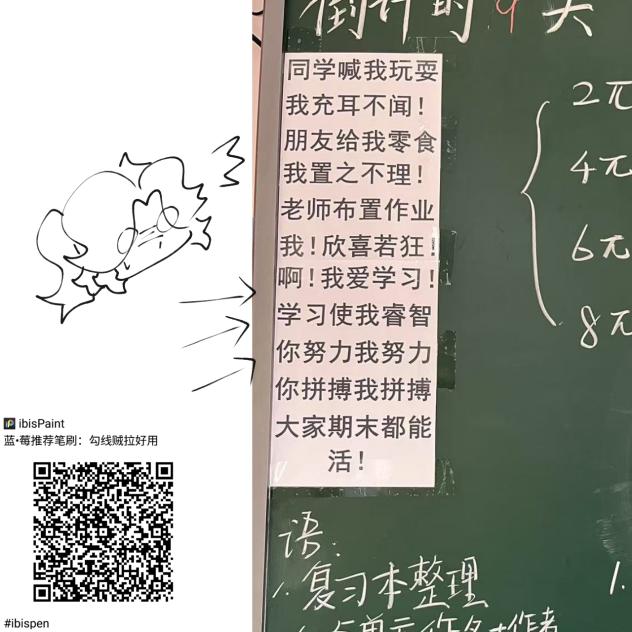 倒计时9天
同学喊我玩耍
我充耳不闻！
朋友给我零食
我置之不理！
老师布置作业
我！欣喜若狂！
啊！我爱学习！
学习使我睿智
你努力我努力
你拼搏我拼搏
大家期末都能
活！
2π
4π
6π
8π
语：
1. 复习本整理
1.
ibisPaint
蓝•莓推荐笔刷：勾线贼拉好用
#ibispen